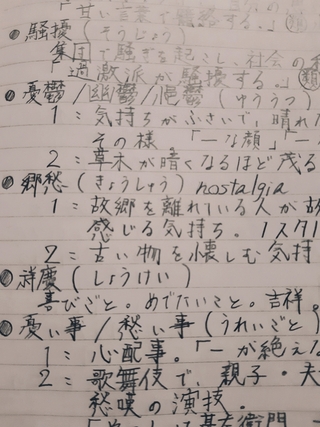 「甘い言葉で籠絡する。」
騒擾(そうじょう)
集団で騒ぎを起こし、社会の
「過激派が騒擾する。」類
憂鬱/幽鬱/悒鬱(ゆううつ)
1:気持ちがふさいで、晴れ
その様 「ーな顔」「ー
2:草木が暗くなるほど茂る
郷愁(きょうしゅう) nostalgia
1:故郷を離れている人が故
感じる気持ち。ノスタル
2:古い物を懐しむ気持
祥慶(しょうけい)
喜びごと。めでたいこと。吉祥。
憂い事/愁い事(うれいごと)
1:心配事。「ーが絶えな
2:歌舞伎で、親子・夫
愁嘆の演技。